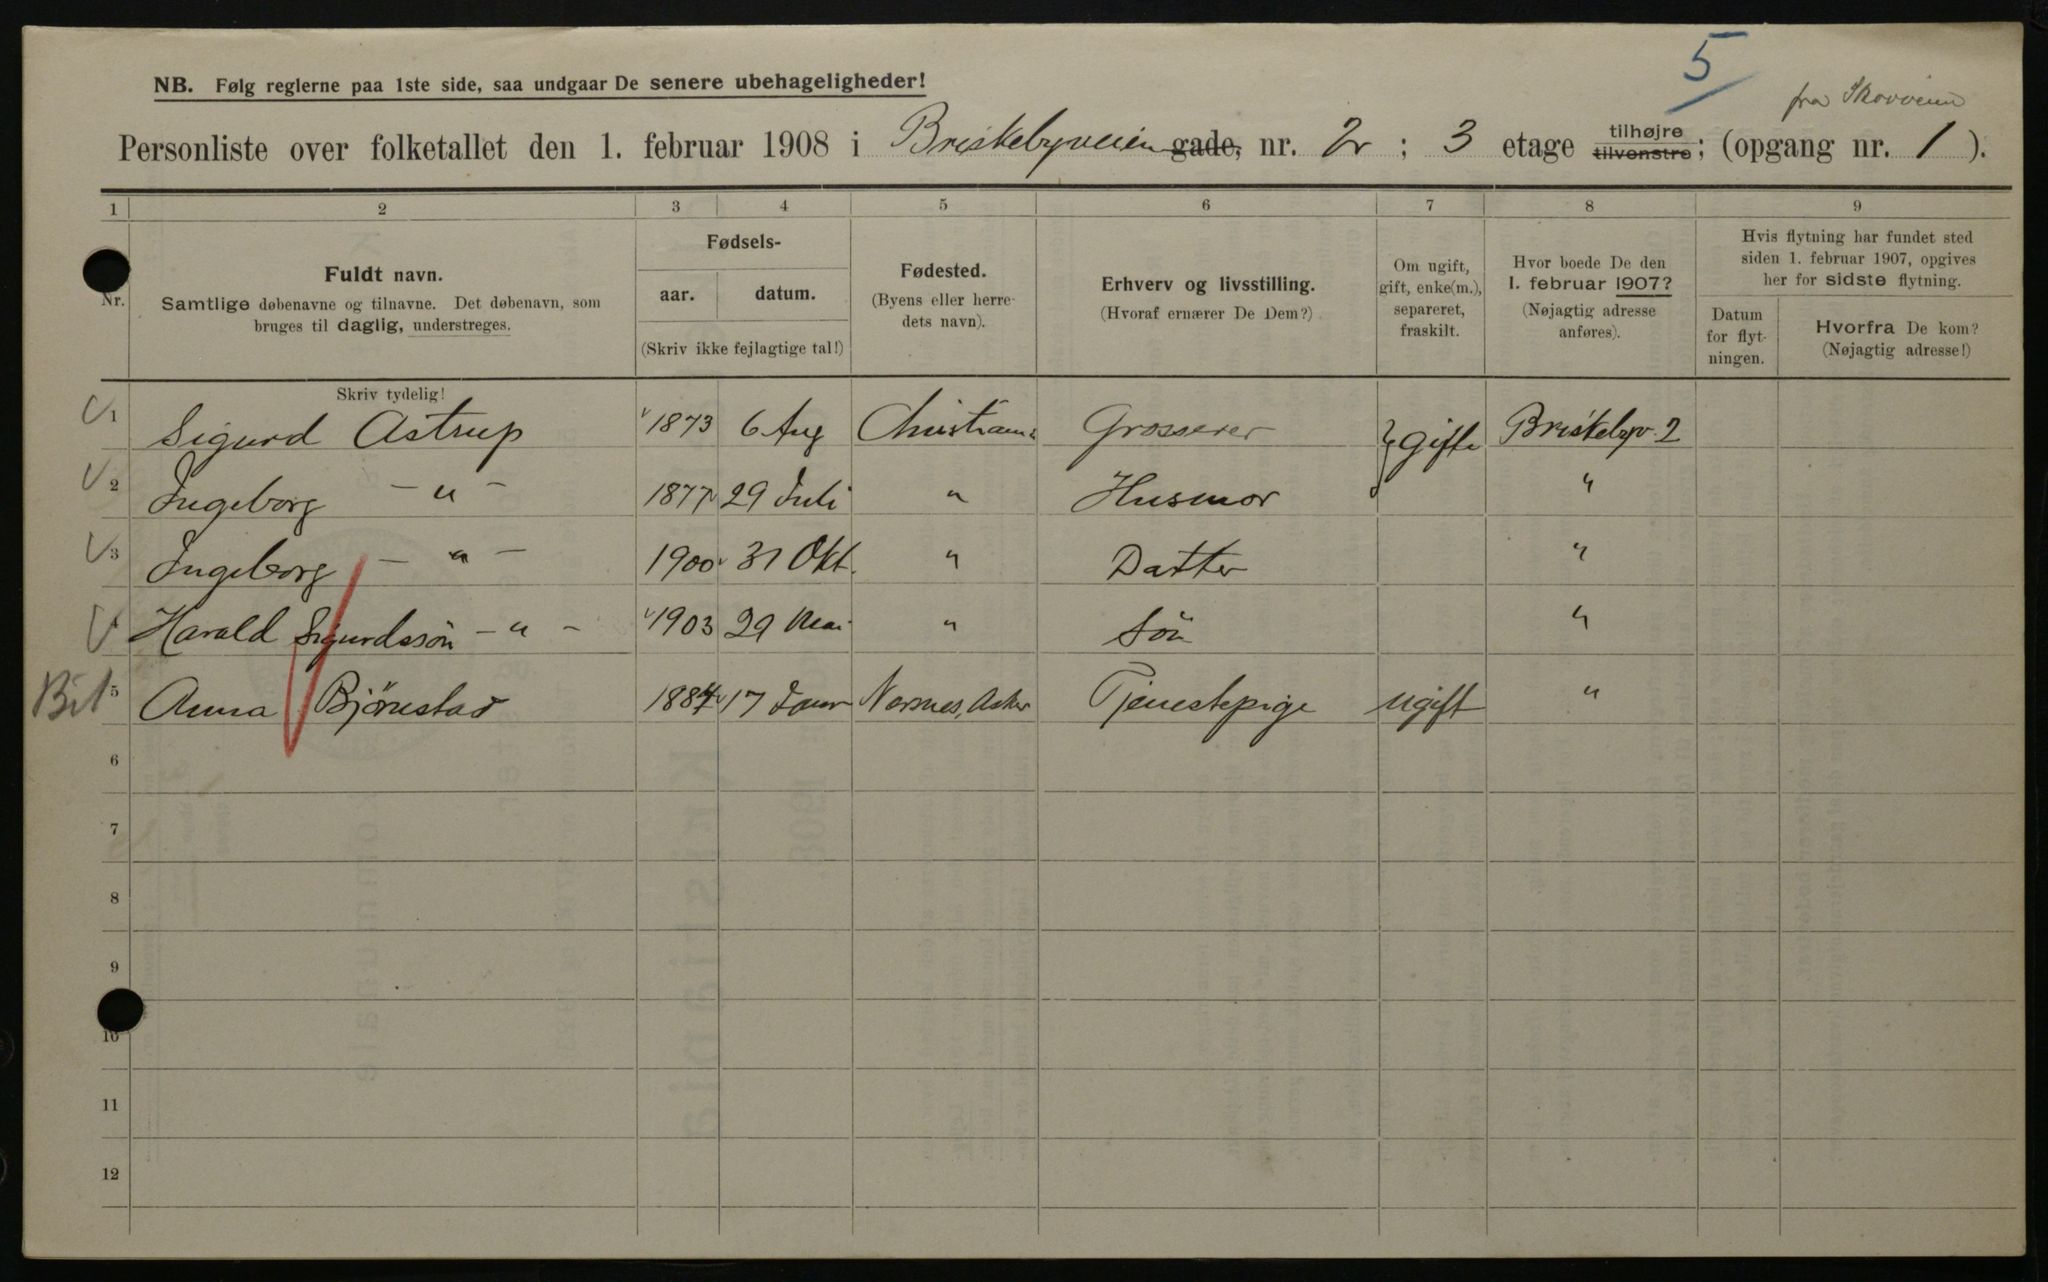 5
fra Skovveien
NB. Følg reglerne paa 1ste side, saa undgaar De senere ubehageligheder!
Personliste over folketallet den 1. februar 1908 i Briskebyveien gade, nr. 2 ; 3 etage tilhøjre tilvenstre; (opgang nr. 1 ).
1 2 3 4 5 6 7 8 9
Nr.
Fuldt navn.
Samtlige døbenavne og tilnavne. Det døbenavn, som
bruges til daglig, understreges.
Fødsels-
aar. datum.
(Skriv ikke fejlagtige tal!)
Fødested.
(Byens eller herre-
dets navn).
Erhverv og livsstilling.
(Hvoraf ernærer De Dem?)
Om ugift,
gift, enke(m.),
separeret,
fraskilt.
Hvor boede De den
1. februar 1907?
(Nøjagtig adresse
anføres).
Hvis flytning har fundet sted
siden 1. februar 1907, opgives
her for sidste flytning.
Datum
for flyt-
ningen.
Hvorfra De kom?
(Nøjagtig adresse!)
Skriv tydelig!
1 Sigurd Astrup 1873 6 Aug Christiania Grosserer } gifte Briskebyv. 2
2 Ingeborg — " — 1877 29 Juli " Husmor "
3 Ingeborg — " — 1900 31 Okt. " Datter "
4 Harald Sigurdssön — " — 1903 29 Mai " Sön "
Bil 5 Anna Björnestad 1884 17 Janr Nersnes, Asker Tjenestepige ugift "
6
7
8
9
10
11
12